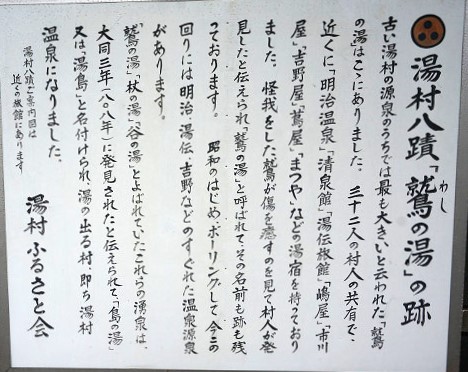 湯村八蹟「鷲の湯」の跡
わし
古い湯村の源泉のうちでは最も大きいと云われた「鷲
の湯」はこゝにありました。三十二人の村人の共有で、
近くに「明治温泉」「清泉館」「湯伝旅館」「嶋屋」「市川
屋」「吉野屋」「蔦屋」「まつや」などの湯宿を持っており
ました。怪我をした鷲が傷を癒すのを見て村人が発
見したと伝えられ「鷲の湯」と呼ばれて、その名前も跡も残
っております。 昭和のはじめ、ボーリングして今この
回りには明治、湯伝、吉野などのすぐれた温泉源泉
があります。
「鷲の湯」「杖の湯」「谷の湯」とよばれていたこれらの湧泉は、
大同三年(八〇八年)に発見されたと伝えられて、「島の湯」
又は、「湯島」と名付けられ、湯の出る村、即ち湯村
温泉になりました。
湯村八蹟ご案内図は
近くの旅館にあります
湯村ふるさと会